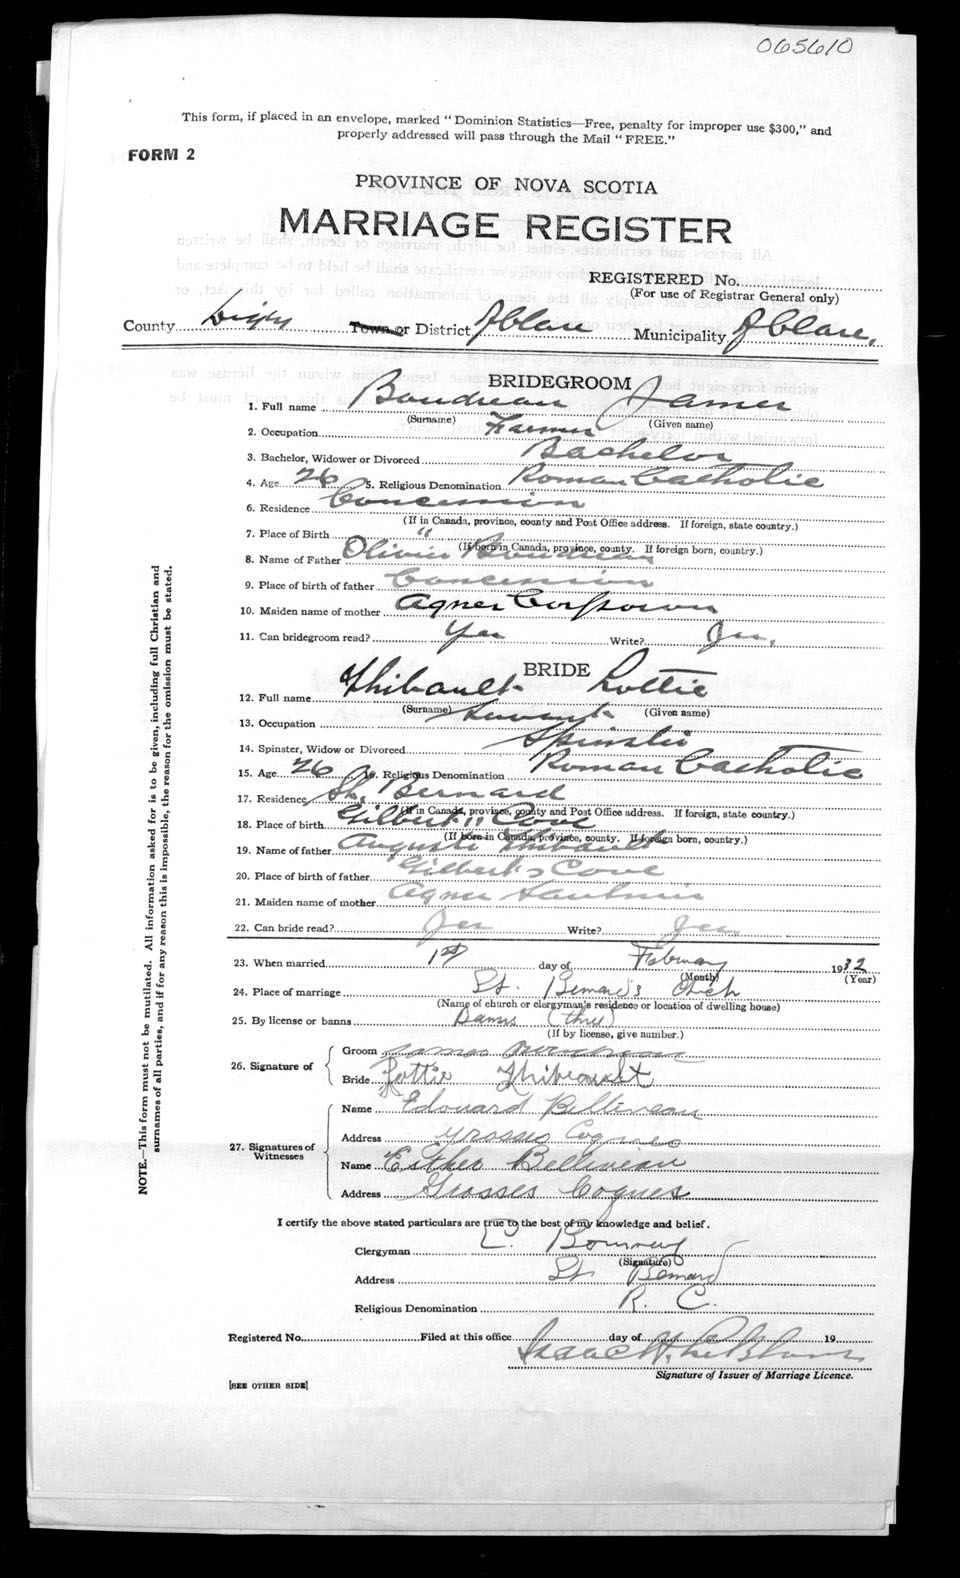 065610
This form, if placed in an envelope, marked "Dominion Statistics—Free, penalty for improper use $300," and
properly addressed will pass through the Mail "FREE."
FORM 2
PROVINCE OF NOVA SCOTIA
MARRIAGE REGISTER
REGISTERED No.
(For use of Registrar General only)
County Digby Town or District Clare Municipality Clare,
BRIDEGROOM
1. Full name Boudreau James
(Surname) (Given name)
2. Occupation Farmer
3. Bachelor, Widower or Divorced Bachelor
4. Age 26 5. Religious Denomination Roman Catholic
6. Residence Concession
(If in Canada, province, county and Post Office address. If foreign, state country.)
7. Place of Birth "
(If born in Canada, province, county. If foreign born, country.)
8. Name of Father Boudreau
9. Place of birth of father Concession
10. Maiden name of mother Agnes
11. Can bridegroom read? Yes Write? Yes,
BRIDE
12. Full name Thibault Lottie
(Surname) (Given name)
13. Occupation Servant
14. Spinster, Widow or Divorced Spinster
15. Age 26 16. Religious Denomination Roman Catholic
17. Residence St. Bernard
(If in Canada, province, county and Post Office address. If foreign, state country.)
18. Place of birth Gilbert's Cove
(If born in Canada, province, county. If foreign born, country.)
19. Name of father Thibault
20. Place of birth of father Gilbert's Cove
21. Maiden name of mother Agnes
22. Can bride read? Yes Write? Yes
23. When married 1st day of February 1932
(Month) (Year)
24. Place of marriage St. Bernard's Church
(Name of church or clergyman's residence or location of dwelling house)
25. By license or banns Banns (three)
(If by license, give number.)
26. Signature of
Groom James Boudreau
Bride Lottie Thibeault
27. Signatures of Witnesses
Name Edouard Belliveau
Address Grosses Coques
Name Esther Belliveau
Address Grosses Coques
I certify the above stated particulars are true to the best of my knowledge and belief.
Clergyman
(Signature)
Address St. Bernard
Religious Denomination R. C.
Registered No. Filed at this office day of 19
Isaac H. LeBlanc
Signature of Issuer of Marriage Licence.
[SEE OTHER SIDE]
NOTE.—This form must not be mutilated. All information asked for is to be given, including full Christian and
surnames of all parties, and if for any reason this is impossible, the reason for the omission must be stated.